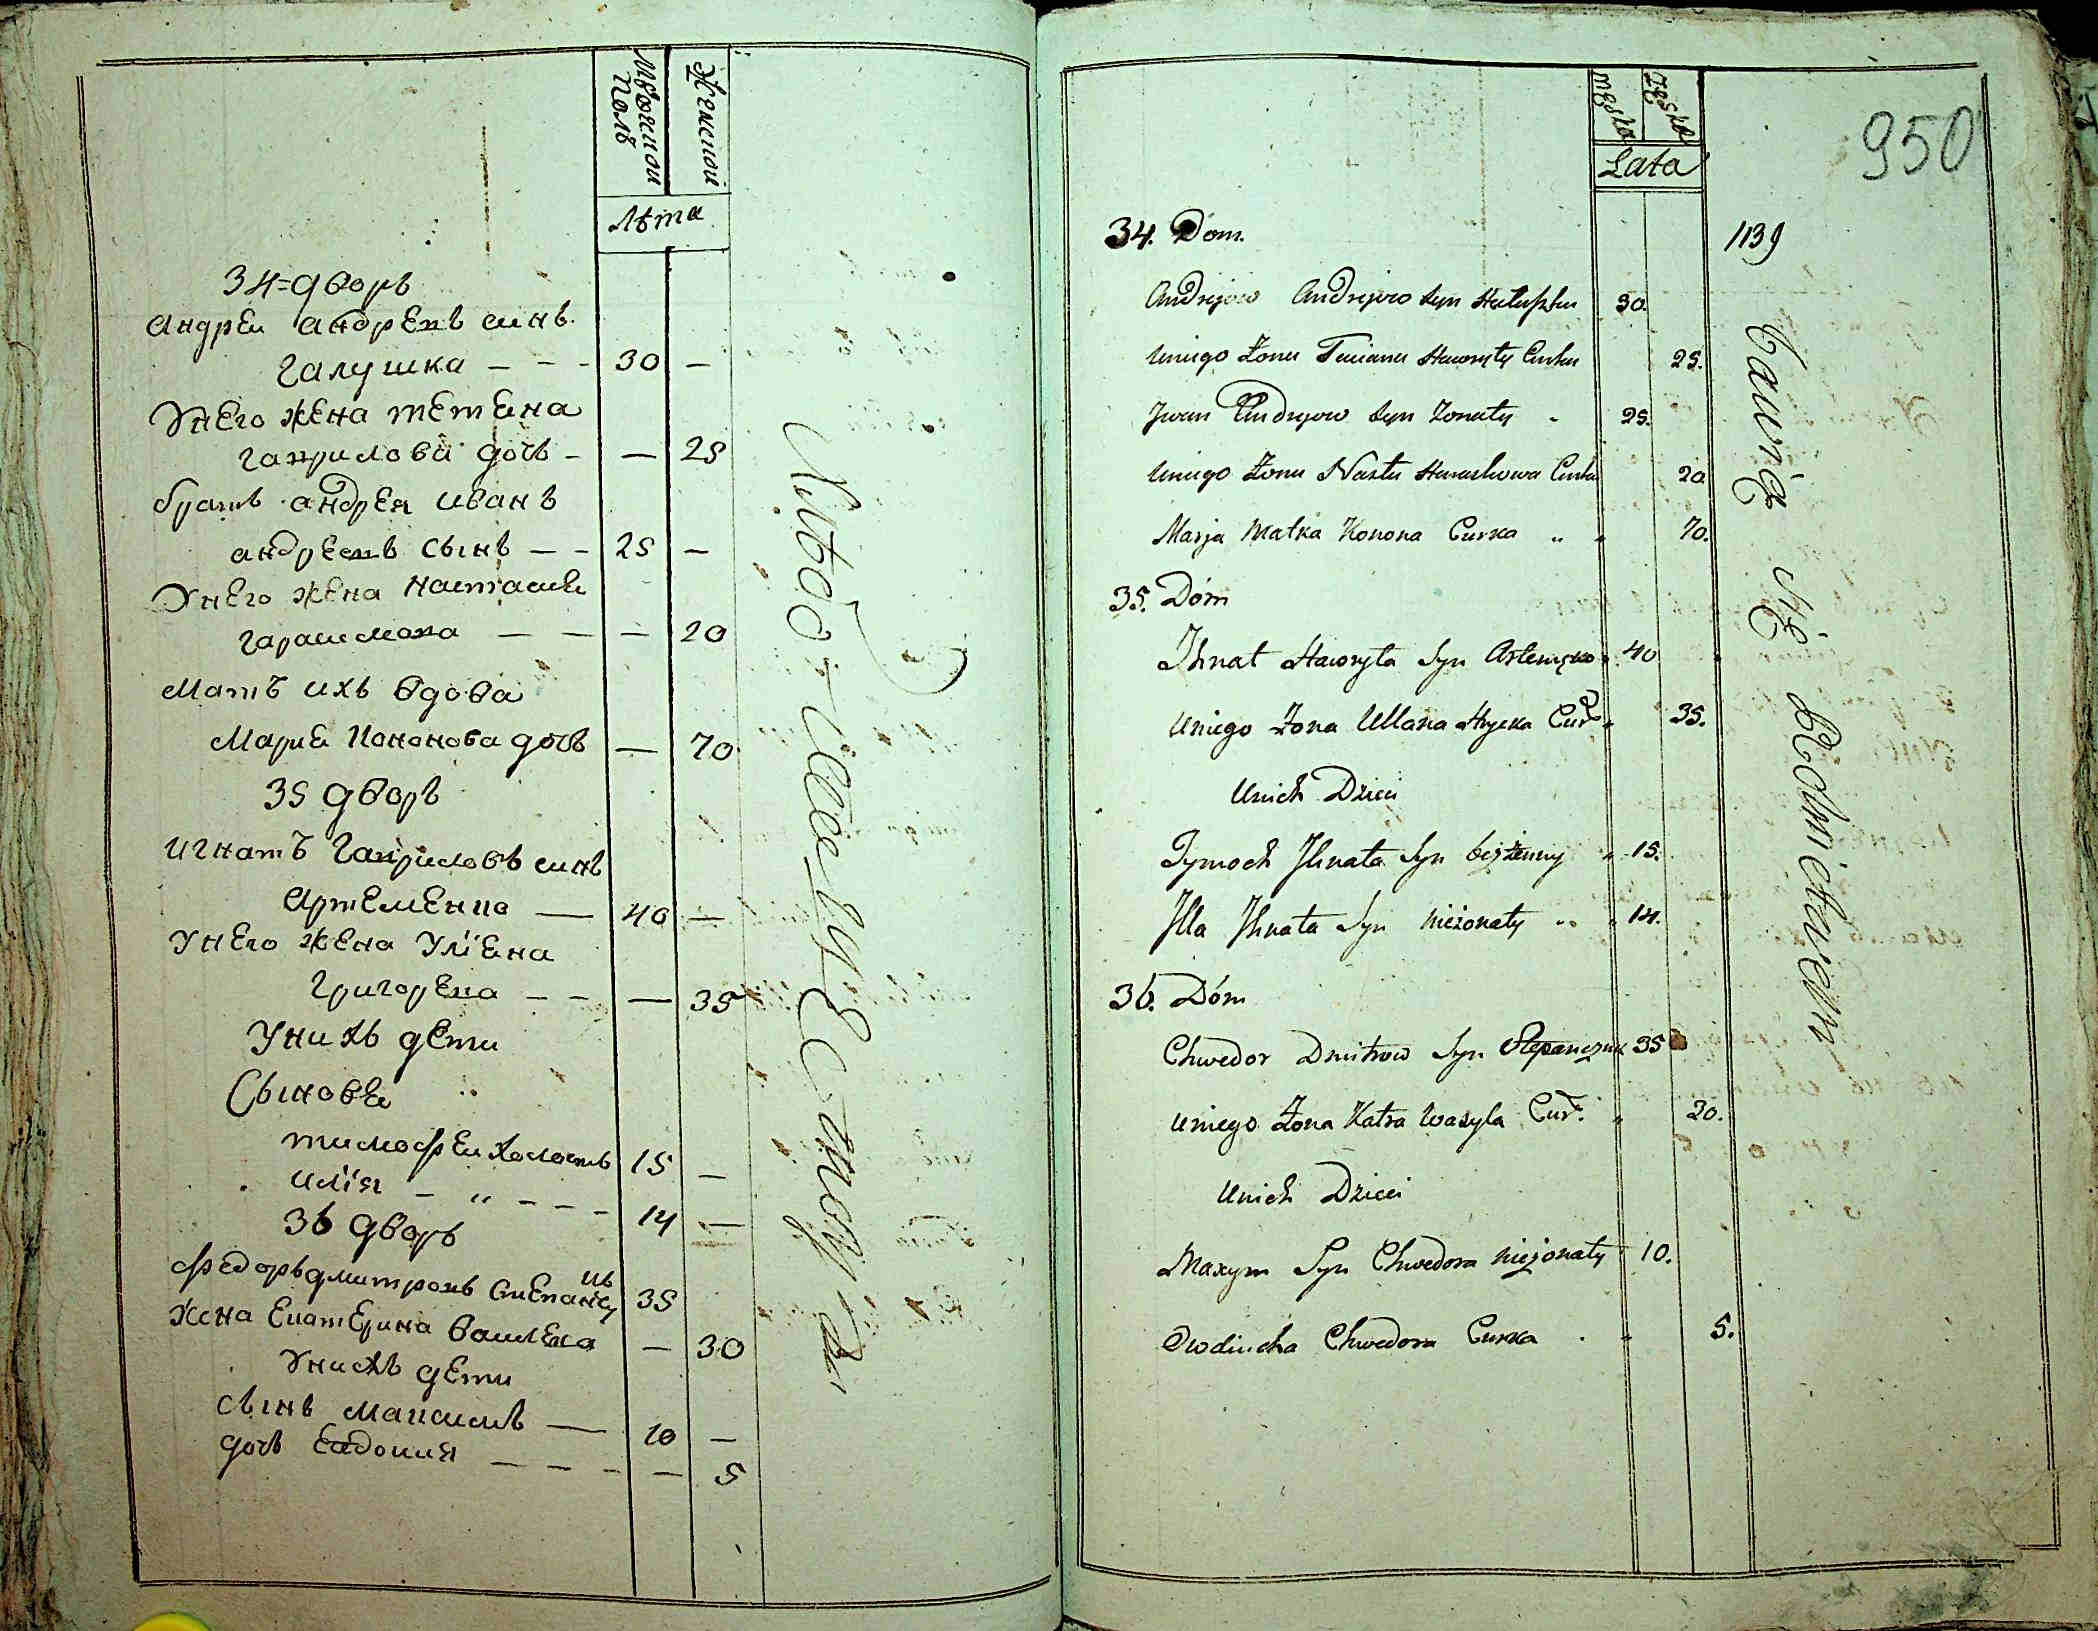 Мужской
Полъ
Женской
Лѣта
34=дворъ
Андреи андреевъ синъ
галушка — — — 30 —
Унего жена тетеяна
гаврилова дочь — — 25
братъ андрея иванъ
андреевъ сынъ — — 25 —
Унего жена настасия
гарасимова — — — 20
Мать ихъ вдова
Мария Кононова дочь — 70
35 дворъ
игнатъ гавриловъ синъ
Артеменко — 40 —
Унего жена Улiена
григорева — — — 35
Унихъ дети
Сыновья
тимофеи холостъ 15 —
илiя — " — — — 14 —
36 дворъ
федоръ дмитровъ степанчукъ 35
жена Екатерина василева — 30
Унихъ дети
сынъ максимъ — 10 —
дочь Евдокия — — — — 5
męska
żęska
Lata
950
34. Dom. 1139
Andrejow Andrejow Syn Hałuszka 30.
Uniego Żona Taciana Hawryły Curka 25.
Jwan Andrejow Syn Żonaty 25.
Uniego Żona Nasta Haraskowa Curka 20
Marja Matka Konona Curka „ „ 70.
35. Dóm
Jhnat Hawryła Syn Artemęko 40
Uniego Żona Ullana Hrycka Cur. 35.
Unich Dzieci
Tymoch Jhnata Syn beżżenny „ 15.
Jlla Jhnata Syn nieżonaty „ „ 14.
36. Dóm
Chwedor Dmitrow Syn Stepanczuk 35
Uniego Żona Katra Wasyla Cur. „ 30.
Unich Dzieci
Maxym Syn Chwedora nieżonaty 10.
Owdiucha Chwedora Curka . „ 5.
bawią się Rolnictwem